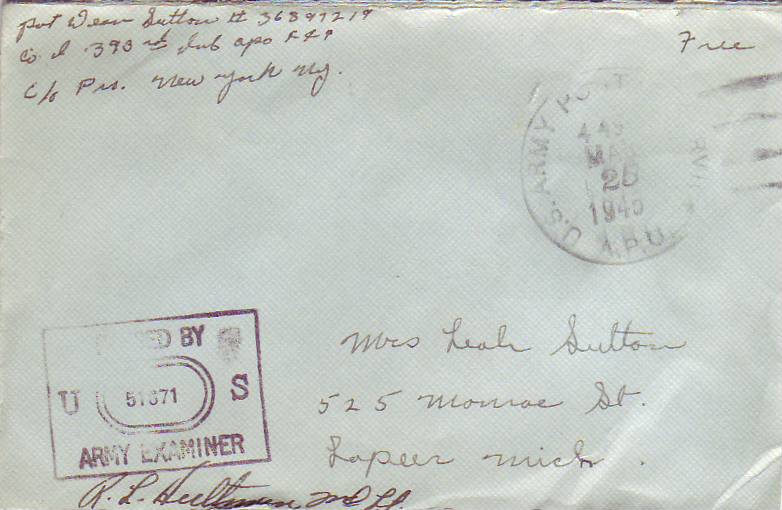 Pvt Dean Sutton # 36897219
Co I 393rd Inf apo
c/o Pm. New York Ny.
Free
U.S. ARMY
MAR
25
1945
A.P.O.
BY
U 51371 S
ARMY EXAMINER
Mrs Leah Sutton
525 Monroe St.
Lapeer Mich.
R. L. 2nd Lt.